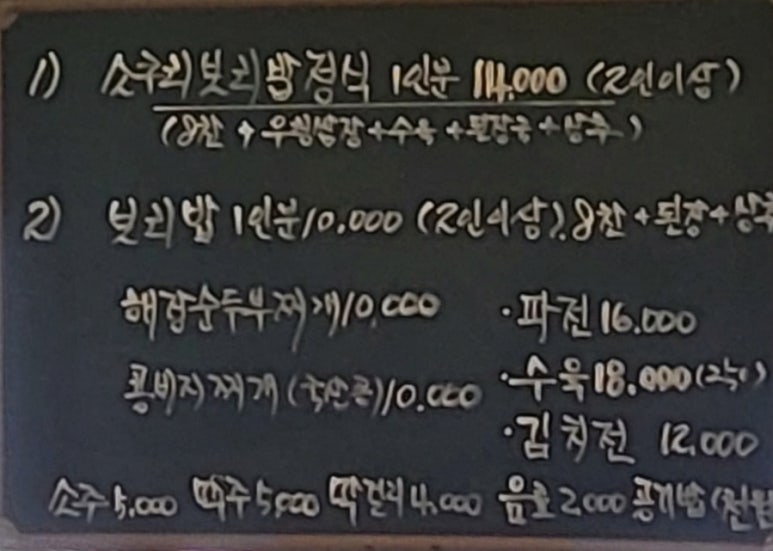 1) 소쿠리보리밥정식 1인분 14.000 (2인이상)
(8찬 + 우렁쌈장+수육+된장국+상추)
2) 보리밥 1인분 10.000 (2인이상). 8찬+된장+상추
해물순두부찌개 10.000 ·파전 16.000
콩비지찌개 (국산콩) 10.000 ·수육 18.000
·김치전 12.000
소주 5.000 맥주 5,000 막걸리 4.000 음료 2.000 공기밥 (천원